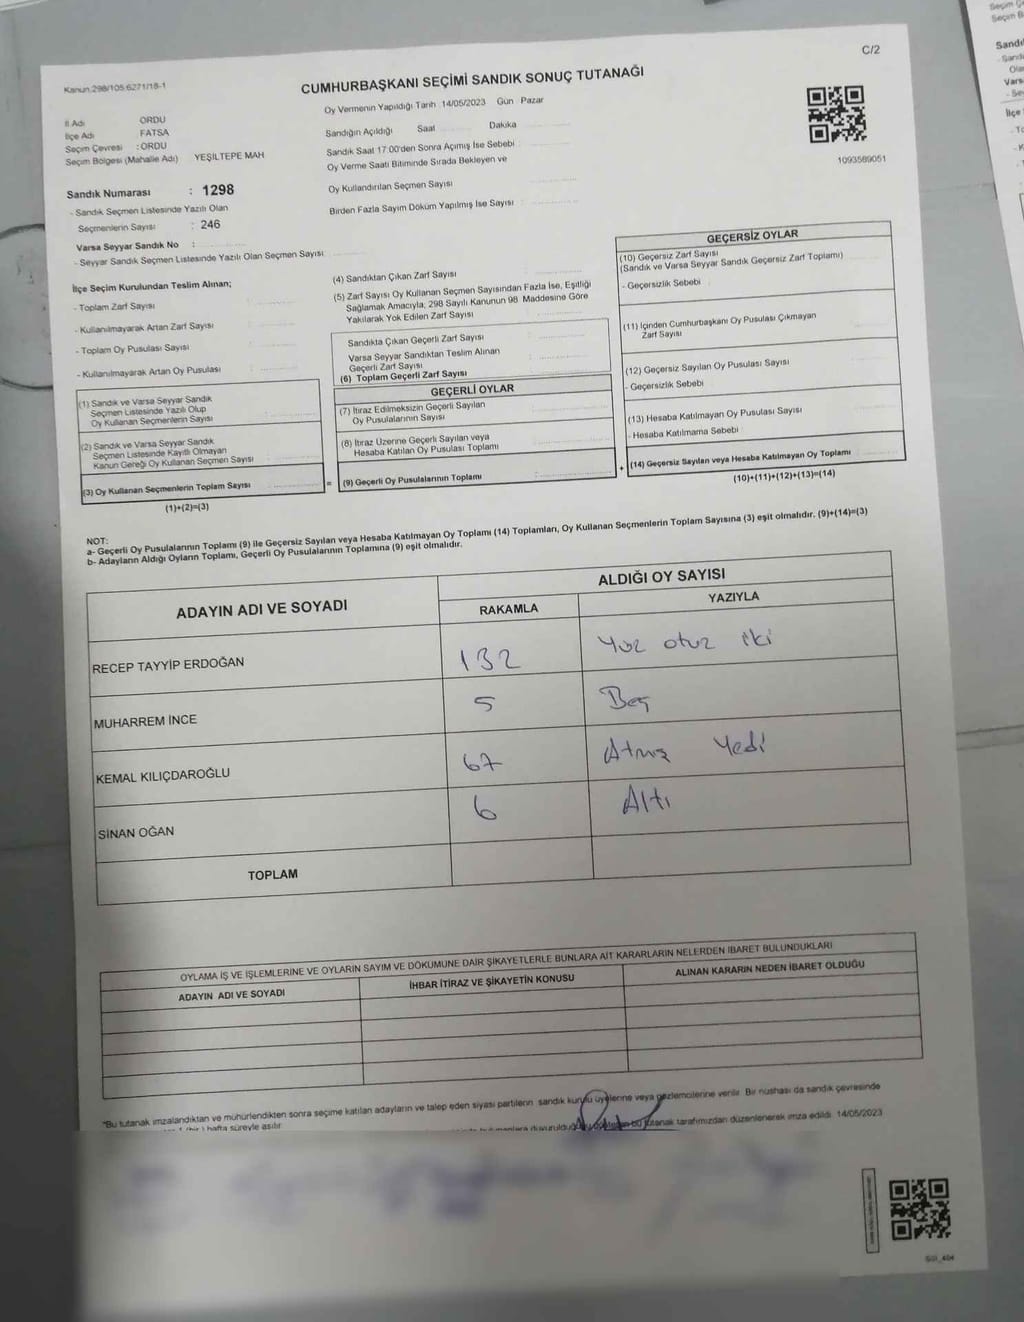 C/2
Kanun.298/105.6271/18-1
CUMHURBAŞKANI SEÇİMİ SANDIK SONUÇ TUTANAĞI
Oy Vermenin Yapıldığı Tarih 14/05/2023 Gün Pazar
İl Adı ORDU
İlçe Adı FATSA
Seçim Çevresi : ORDU
Seçim Bölgesi (Mahalle Adı) YEŞİLTEPE MAH
Sandığın Açıldığı Saat Dakika
Sandık Saat 17:00'den Sonra Açımış İse Sebebi
Oy Verme Saati Bitiminde Sırada Bekleyen ve
Oy Kullandırılan Seçmen Sayısı
Birden Fazla Sayım Döküm Yapılmış İse Sayısı :
1093569051
Sandık Numarası : 1298
- Sandık Seçmen Listesinde Yazılı Olan
Seçmenlerin Sayısı : 246
Varsa Seyyar Sandık No :
- Seyyar Sandık Seçmen Listesinde Yazılı Olan Seçmen Sayısı:
İlçe Seçim Kurulundan Teslim Alınan;
- Toplam Zarf Sayısı
- Kullanılmayarak Artan Zarf Sayısı
- Toplam Oy Pusulası Sayısı
- Kullanılmayarak Artan Oy Pusulası
(1) Sandık ve Varsa Seyyar Sandık
Seçmen Listesinde Yazılı Olup
Oy Kullanan Seçmenlerin Sayısı
(2) Sandık ve Varsa Seyyar Sandık
Seçmen Listesinde Kayıtlı Olmayan
Kanun Gereği Oy Kullanan Seçmen Sayısı
(3) Oy Kullanan Seçmenlerin Toplam Sayısı
(1)+(2)=(3)
=
(4) Sandıktan Çıkan Zarf Sayısı
(5) Zarf Sayısı Oy Kullanan Seçmen Sayısından Fazla İse, Eşitliği
Sağlamak Amacıyla, 298 Sayılı Kanunun 98. Maddesine Göre
Yakılarak Yok Edilen Zarf Sayısı
Sandıkta Çıkan Geçerli Zarf Sayısı
Varsa Seyyar Sandıktan Teslim Alınan
Geçerli Zarf Sayısı
(6) Toplam Geçerli Zarf Sayısı
GEÇERLİ OYLAR
(7) İtiraz Edilmeksizin Geçerli Sayılan
Oy Pusulalarının Sayısı
(8) İtiraz Üzerine Geçerli Sayılan veya
Hesaba Katılan Oy Pusulası Toplamı
(9) Geçerli Oy Pusulalarının Toplamı
+
GEÇERSİZ OYLAR
(10) Geçersiz Zarf Sayısı
(Sandık ve Varsa Seyyar Sandık Geçersiz Zarf Toplamı)
- Geçersizlik Sebebi
(11) İçinden Cumhurbaşkanı Oy Pusulası Çıkmayan
Zarf Sayısı
(12) Geçersiz Sayılan Oy Pusulası Sayısı
- Geçersizlik Sebebi
(13) Hesaba Katılmayan Oy Pusulası Sayısı
- Hesaba Katılmama Sebebi
(14) Geçersiz Sayılan veya Hesaba Katılmayan Oy Toplamı
(10)+(11)+(12)+(13)=(14)
NOT:
a- Geçerli Oy Pusulalarının Toplamı (9) ile Geçersiz Sayılan veya Hesaba Katılmayan Oy Toplamı (14) Toplamları, Oy Kullanan Seçmenlerin Toplam Sayısına (3) eşit olmalıdır. (9)+(14)=(3)
b- Adayların Aldığı Oyların Toplamı, Geçerli Oy Pusulalarının Toplamına (9) eşit olmalıdır.
ADAYIN ADI VE SOYADI ALDIĞI OY SAYISI
RAKAMLA YAZIYLA
RECEP TAYYİP ERDOĞAN 132 Yüz otuz iki
MUHARREM İNCE 5 Beş
KEMAL KILIÇDAROĞLU 67 Atmış Yedi
SİNAN OĞAN 6 Altı
TOPLAM
OYLAMA İŞ VE İŞLEMLERİNE VE OYLARIN SAYIM VE DÖKÜMÜNE DAİR ŞİKAYETLERLE BUNLARA AİT KARARLARIN NELERDEN İBARET BULUNDUKLARI
ADAYIN ADI VE SOYADI İHBAR İTİRAZ VE ŞİKAYETİN KONUSU ALINAN KARARIN NEDEN İBARET OLDUĞU
*Bu tutanak imzalandıktan ve mühürlendikten sonra seçime katılan adayların ve talep eden siyasi partilerin sandık kurulu üyelerine veya gözlemcilerine verilir. Bir nüshası da sandık çevresinde
hafta süreyle asılır
bu tutanak tarafımızdan düzenlenerek imza edildi. 14/05/2023